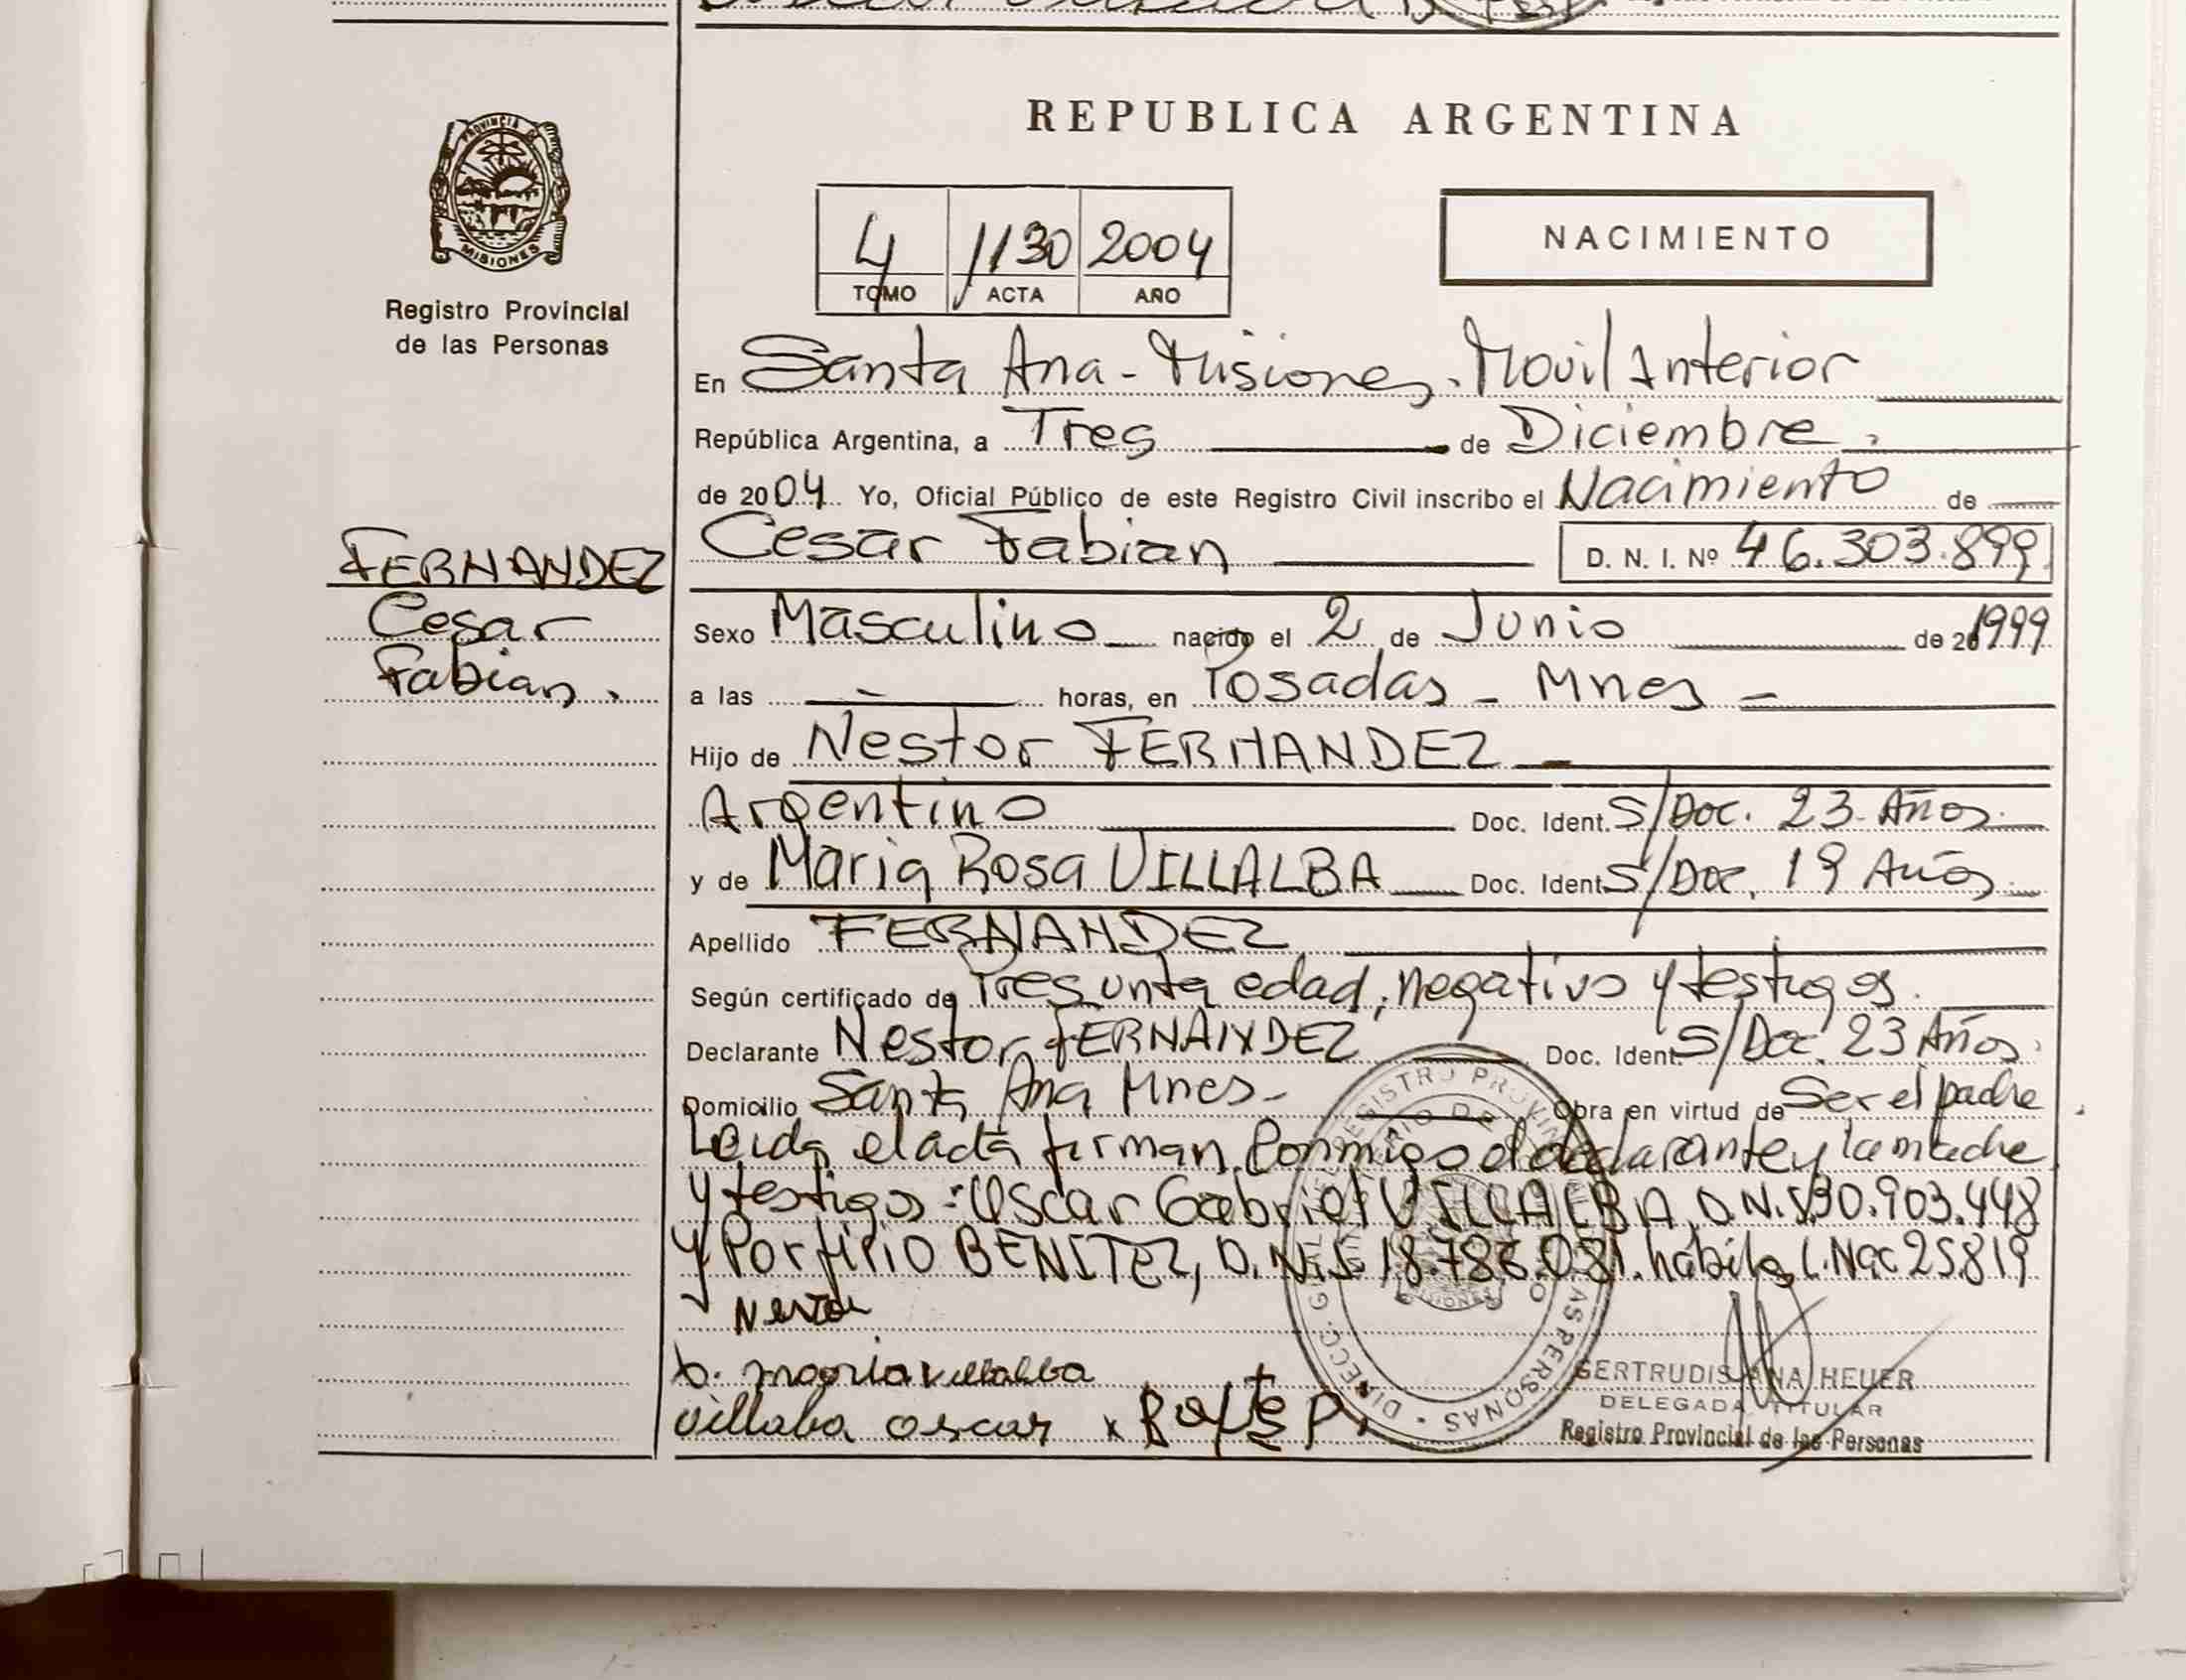 REPUBLICA ARGENTINA
PROVINCIA DE
MISIONES
Registro Provincial
de las Personas
4 1130 2004
TOMO ACTA AÑO
NACIMIENTO
En Santa Ana - Misiones. Movil Anterior
República Argentina, a Tres de Diciembre.
de 2004 Yo, Oficial Público de este Registro Civil inscribo el Nacimiento de
FERNANDEZ
Cesar
Fabian.
Cesar Fabian D. N. I. Nº 46.303.899
Sexo Masculino nacido el 2 de Junio de 20 1999
a las — horas, en Posadas - Mnes -
Hijo de Nestor FERNANDEZ
Argentino Doc. Ident. S/Doc. 23 Años
y de Maria Rosa VILLALBA Doc. Ident. S/Doc. 19 Años
Apellido FERNANDEZ
Según certificado de Presunta edad, negativo y testigos.
Declarante Nestor FERNANDEZ Doc. Ident. S/Doc. 23 Años
Domicilio Santa Ana Mnes - Obra en virtud de Ser el padre
Leida el acta firman Conmigo el declarante y la madre
y testigos: Oscar Gabriel VILLALBA, D.N.I. 30.903.448
y Porfirio BENITEZ, D.N.I. 18.786.081. habiles C.Nac 25819
Nestor
maria villalba
villaba oscar x
GERTRUDIS ANA HEUER
DELEGADA TITULAR
Registro Provincial de las Personas